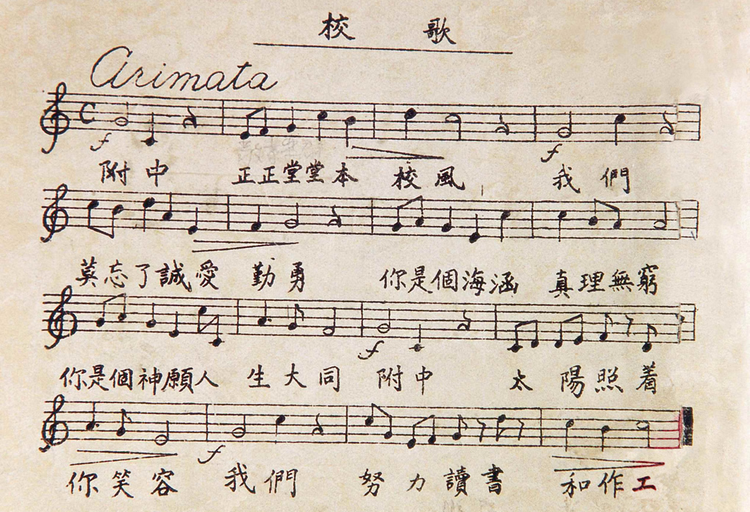 校歌
Arimata
f
附中 正正堂堂本校風， 我們
f
莫忘了誠愛勤勇 你是個海涵真理無窮
你是個神願人生大同 附中 太陽照着
f
你笑容 我們 努力讀書 和作工
f